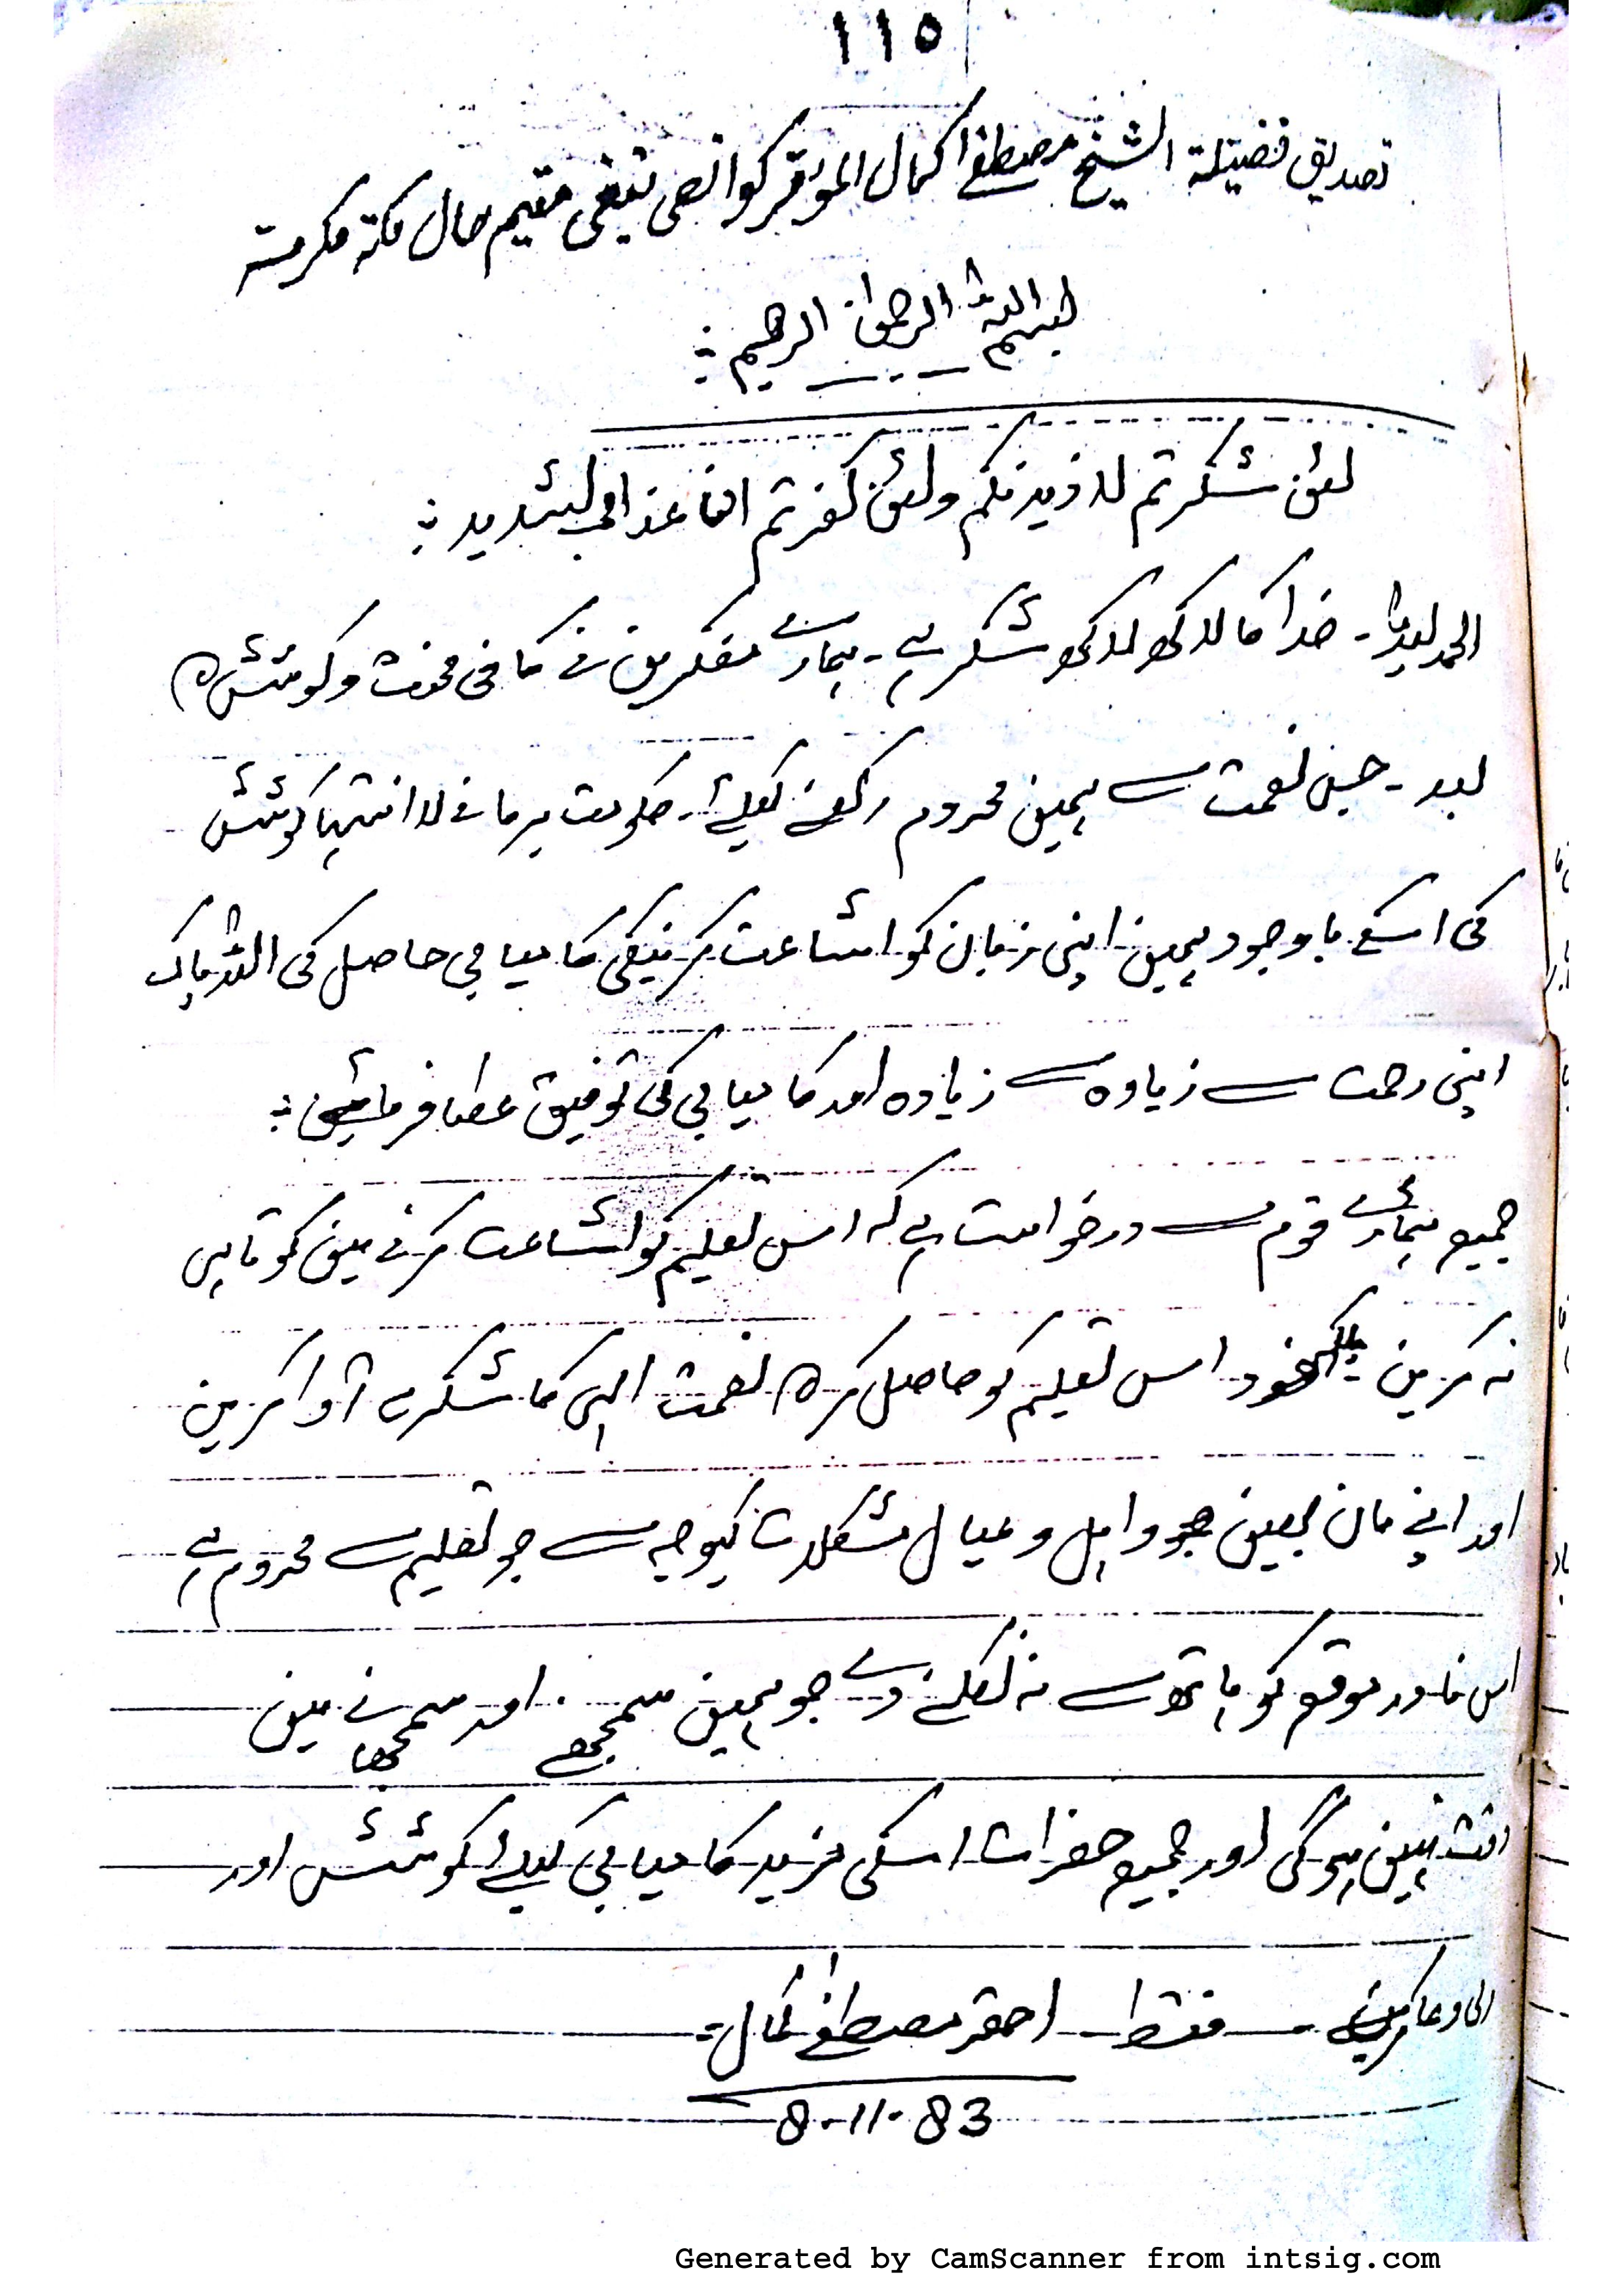 ١١٥
تصدیق فضیلة الشیخ مصطفےٰ کمال المؤقر کوانصی تیغی مقیم حال مکة مکرمتہ
بسم اللہ الرحمٰن الرحیم :
لئن شکرتم لازیدنکم ولئن کفرتم ان عذابی لشدید :
الحمد للہ۔ خدا کا لاکھ لاکھ شکر ہے۔ ہمارے مفکرین نے کافی محنت و کوشش کے
بعد۔ جس نعمت سے ہمین محروم رکھنے کیلئے۔ حکومت برما نے لا انتہا کوشش
کی اسکے باوجود ہمین اپنی زبان کو اشاعت کرنیکی کامیابی حاصل کی اللہ پاک
اپنی رحمت سے زیادہ سے زیادہ اور کامیابی کی توفیق عطا فرمائین :
جمیع ہمارے قوم سے درخواست ہے کہ اس تعلیم کو اشاعت کرنے مین کوتاہی
نہ کرین بلکہ خود اس تعلیم کو حاصل کر کے نعمت الہی کا شکریہ ادا کرین
اور اپنے مان بہین جو و اہل و عیال مشکلات کیوجہ سے جو تعلیم سے محروم ہے
اس نادر موقع کو ہاتھ سے نہ نکلنے دے جو ہمین سمجھنے اور سمجھانے مین
دقت نہین ہوگی اور جمیع حضرات اسکی مزید کامیابی کیلئے کوشش اور
دعا کرین ۔ فقط احقر مصطفےٰ کمال =
8-11-83
Generated by CamScanner from intsig.com